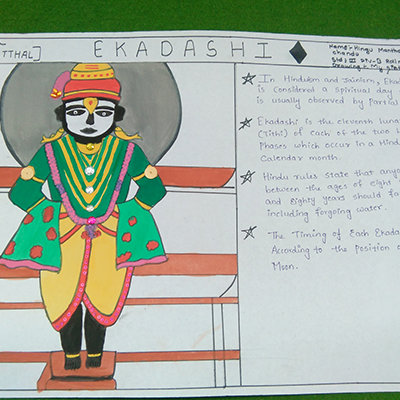 TTHAL]
EKADASHI
Name:- Hingu Mantha
Chandu
Std:
Drawing:- My
In Hinduism and Jainism, Ekad
is considered a spiritual day
is usually observed by partial
Ekadashi is the eleventh luna
(Tithi) of each of the two l
Phases which occur in a Hind
Calendar month.
Hindu rules state that anyo
between the ages of eight
and eighty years should fa
including forgoing water.
The Timing of Each Ekada
According to the position o
Moon.